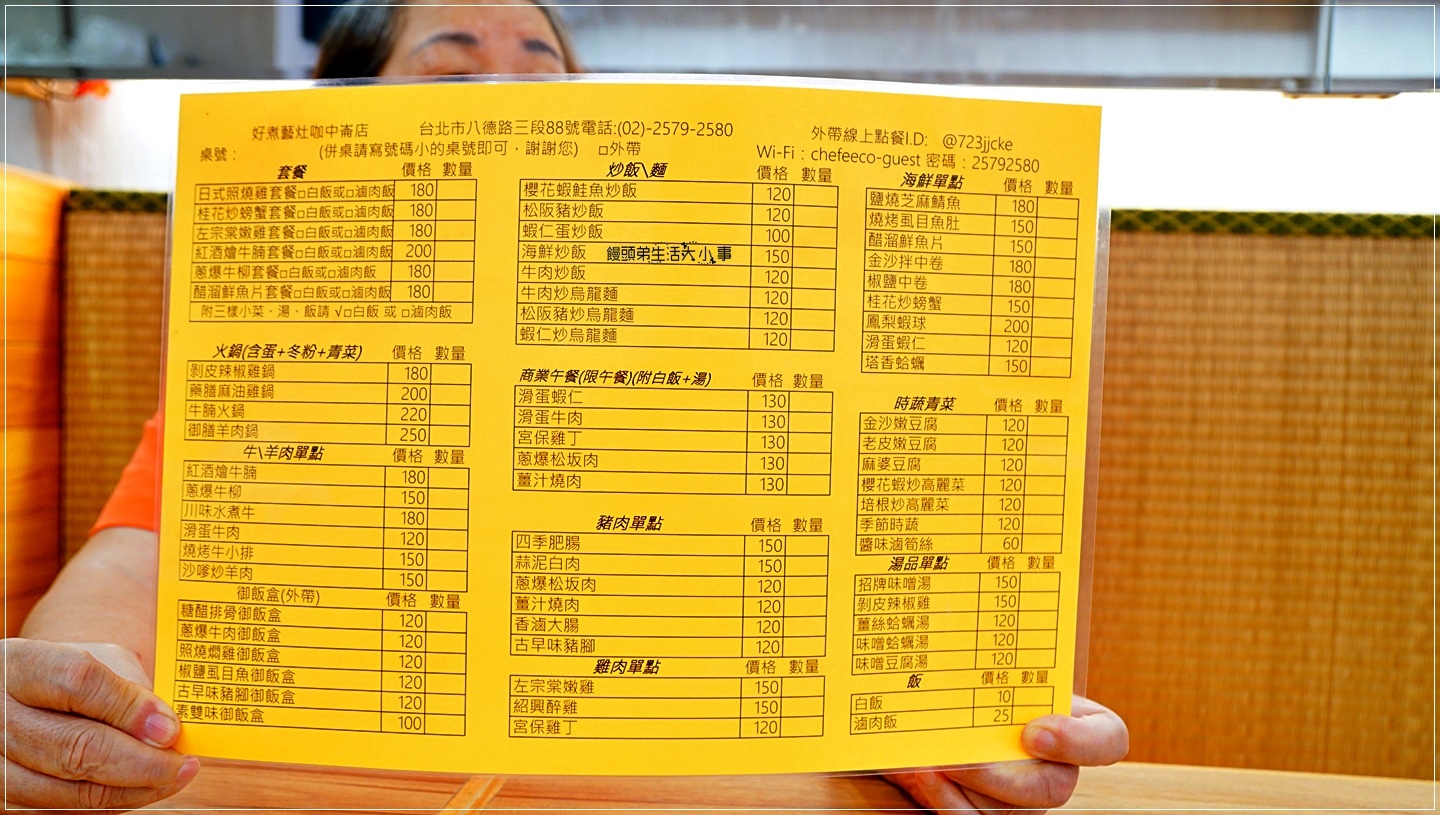 好煮藝灶咖中崙店 台北市八德路三段88號電話:(02)-2579-2580
桌號： (併桌請寫號碼小的桌號即可，謝謝您) □外帶
外帶線上點餐I.D: @723jjcke
Wi-Fi：chefeeco-guest 密碼：25792580
套餐 價格 數量
日式照燒雞套餐□白飯或□滷肉飯 180
桂花炒螃蟹套餐□白飯或□滷肉飯 180
左宗棠嫩雞套餐□白飯或□滷肉飯 180
紅酒燴牛腩套餐□白飯或□滷肉飯 200
蔥爆牛柳套餐□白飯或□滷肉飯 180
醋溜鮮魚片套餐□白飯或□滷肉飯 180
附三樣小菜、湯、飯請 √□白飯 或 □滷肉飯
火鍋(含蛋+冬粉+青菜) 價格 數量
剝皮辣椒雞鍋 180
藥膳麻油雞鍋 200
牛腩火鍋 220
御膳羊肉鍋 250
牛\羊肉單點 價格 數量
紅酒燴牛腩 180
蔥爆牛柳 150
川味水煮牛 180
滑蛋牛肉 120
燒烤牛小排 150
沙嗲炒羊肉 150
御飯盒(外帶) 價格 數量
糖醋排骨御飯盒 120
蔥爆牛肉御飯盒 120
照燒燜雞御飯盒 120
椒鹽虱目魚御飯盒 120
古早味豬腳御飯盒 120
素雙味御飯盒 100
炒飯\麵 價格 數量
櫻花蝦鮭魚炒飯 120
松阪豬炒飯 120
蝦仁蛋炒飯 100
海鮮炒飯 150
饅頭弟生活大小事
牛肉炒飯 120
牛肉炒烏龍麵 120
松阪豬炒烏龍麵 120
蝦仁炒烏龍麵 120
商業午餐(限午餐)(附白飯+湯) 價格 數量
滑蛋蝦仁 130
滑蛋牛肉 130
宮保雞丁 130
蔥爆松坂肉 130
薑汁燒肉 130
豬肉單點 價格 數量
四季肥腸 150
蒜泥白肉 150
蔥爆松坂肉 120
薑汁燒肉 120
香滷大腸 120
古早味豬腳 120
雞肉單點 價格 數量
左宗棠嫩雞 150
紹興醉雞 150
宮保雞丁 120
海鮮單點 價格 數量
鹽燒芝麻鯖魚 180
燒烤虱目魚肚 150
醋溜鮮魚片 150
金沙拌中卷 180
椒鹽中卷 180
桂花炒螃蟹 150
鳳梨蝦球 200
滑蛋蝦仁 120
塔香蛤蠣 150
時蔬青菜 價格 數量
金沙嫩豆腐 120
老皮嫩豆腐 120
麻婆豆腐 120
櫻花蝦炒高麗菜 120
培根炒高麗菜 120
季節時蔬 120
醬味滷筍絲 60
湯品單點 價格 數量
招牌味噌湯 150
剝皮辣椒雞 150
薑絲蛤蠣湯 120
味噌蛤蠣湯 120
味噌豆腐湯 120
飯 價格 數量
白飯 10
滷肉飯 25